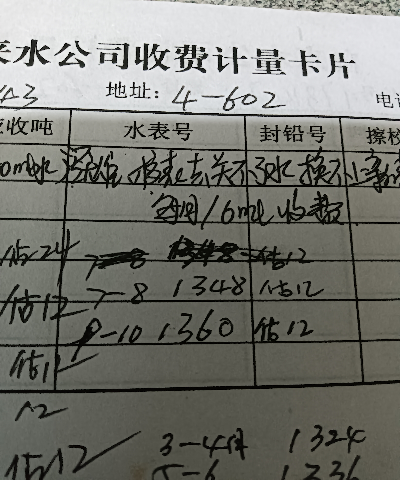 来水公司收费计量卡片
43 地址: 4-602 电话
收吨 水表号 封铅号 擦校
换表去关不了水 换不
每月16吨收费
估24 7-8 1348 估12
估12 7-8 1348 估12
9-10 1360 估12
估12
12
估12 3-4月 1324
5-6 1336